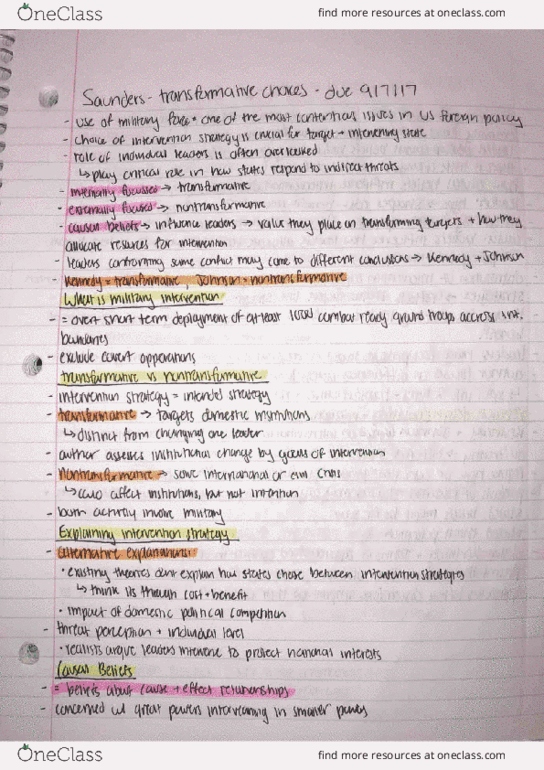 OneClass
find more resources at oneclass.com
Saunders - transformative choices - due 9/7/17
- use of military force = one of the most contentious issues in US foreign policy
- choice of intervention strategy is crucial for target + intervening state
- role of individual leaders is often overlooked
↳ play critical role in how states respond to indirect threats
- internally focused → transformative
- externally focused → nontransformative
- causal beliefs → influence leaders → value they place on transforming targets + how they
allocate resources for intervention
- leaders confronting same conflict may come to different conclusions → Kennedy + Johnson
- Kennedy = transformative Johnson = nontransformative
What is military intervention
- = overt short term deployment of at least 1000 combat ready ground troops across int.
boundaries
- exclude covert opperations
transformative vs nontransformative
- intervention strategy = intended strategy
- transformative → targets domestic institutions
↳ distinct from changing one leader
- author assesses institutional change by goals of intervention
- nontransformative → solve international or civil crisis
↳ could affect institutions, but not intention
- both actively involve military
Explaining intervention strategy
- alternative explanations:
• existing theories dont explain how states chose between intervention strategies
↳ think its through cost + benefit
• impact of domestic political competition
- threat perception + individual level
• realists argue leaders intervene to protect national interests
Causal Beliefs
- = beliefs about cause + effect relationships
- concerned w/ great powers intervening in smaller powers
OneClass
find more resources at oneclass.com